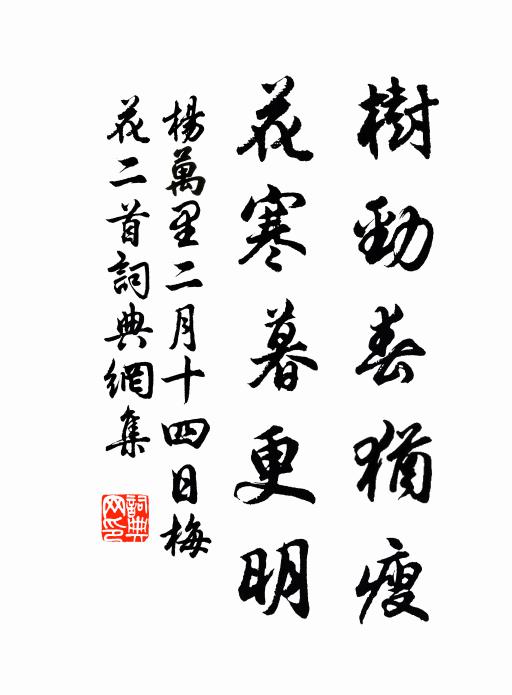 樹勁春猶瘦
花寒暮更明
楊萬里二月十四日梅
花二首詞典網集
詞典
网印